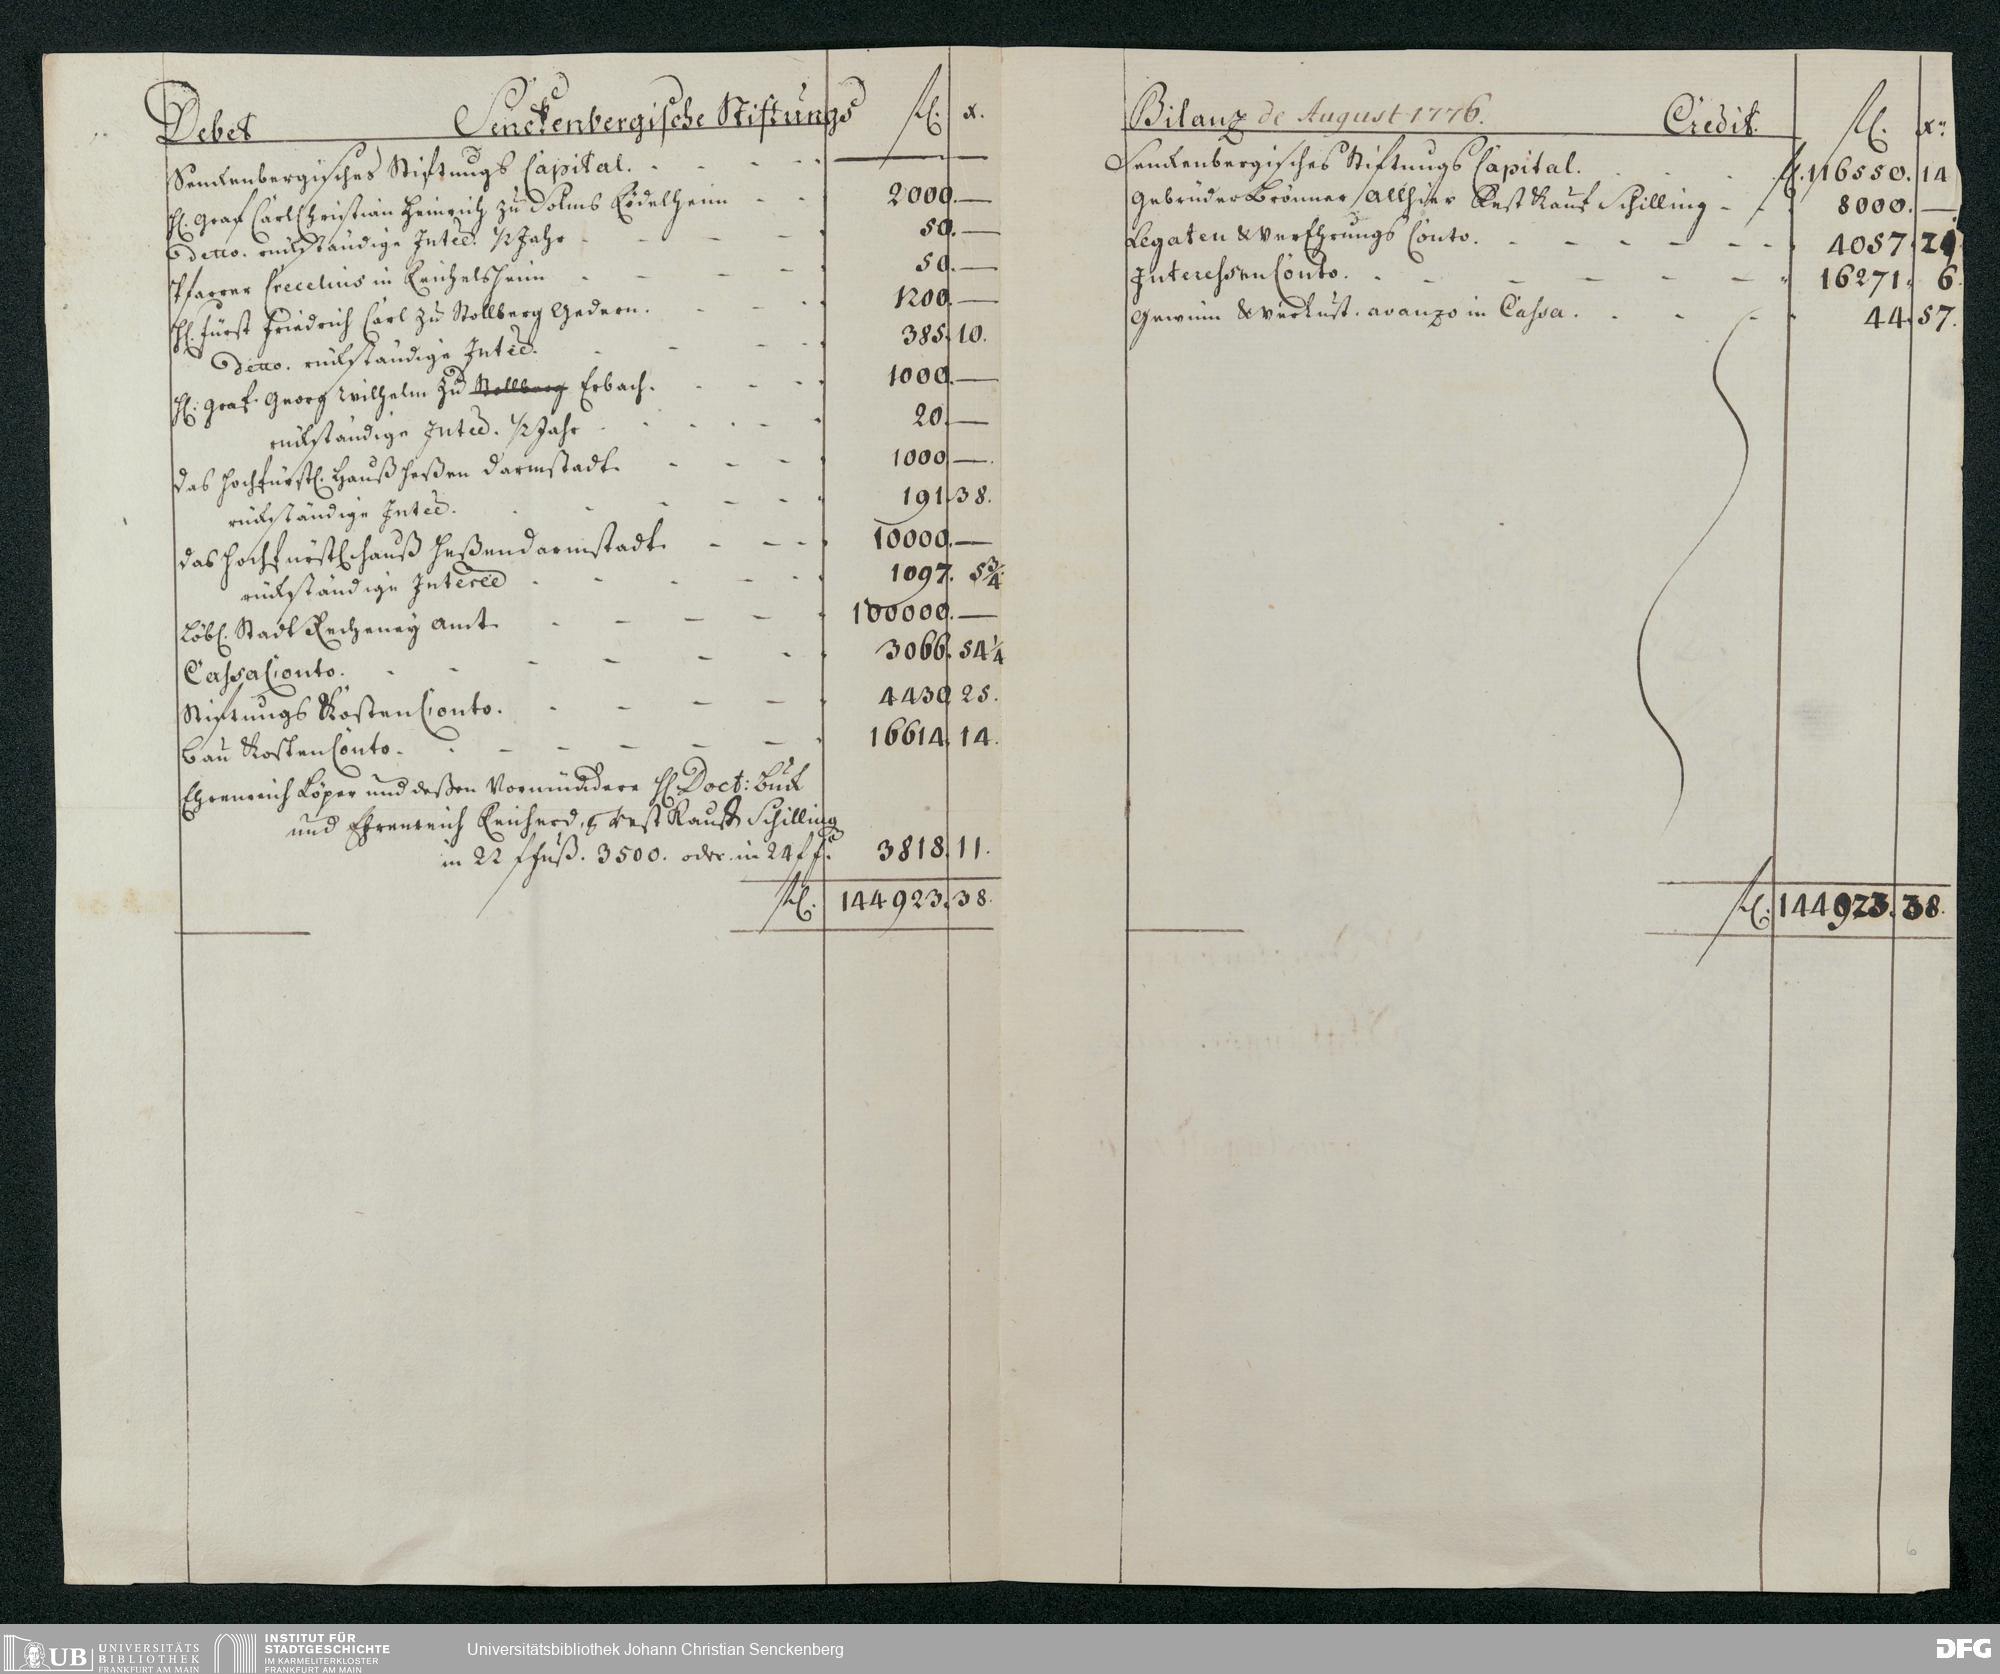 Debet Senckenbergische Stiftungs fl. x.
Senckenbergisches Stiftungs Capital. —
H. Graf Carl Christian Heinrich zu Solms Rödelheim 2000. —
detto. rückständige Intee. 1/2 Jahr 50. —
Pfarrer Crecelius in Reichelsheim 50. —
H. Fürst Friedrich Carl zu Stollberg Gedern. 1200. —
detto. rückständige Intee. 385. 10.
H. Graf Georg Wilhelm zu Stollberg Erbach. 1000. —
rückständige Intee. 1/2 Jahr 20. —
das Hochfürstl. Hauß Heßen Darmstadt 1000. —
rückständige Intee. 191. 38.
das Hochfürstl. Hauß Heßendarmstadt 10000. —
rückständige Interee 1097. 5 3/4
Löbl. Stadt Recheney Amt 100000. —
Cassa Conto. 3066. 54 1/4
Stiftungs Kosten Conto. 4430. 25.
Bau Kosten Conto. 16614. 14.
Ehrenreich Löper und deßen Vormündere H Doct: Buck
und Ehrenreich Reicherd, Rest Kauf Schilling
in 22 f fuß. 3500. oder in 24 f f. 3818. 11.
fl. 144923. 38.
Bilanz de August 1776. Credit. fl. xr.
Senckenbergisches Stiftungs Capital. fl. 116550. 14
Gebrüder Brönner allhier Rest Kauf Schilling 8000. —
Legaten & Verehrungs Conto. 4057. 21
Interessen Conto. 16271. 6.
Gewinn & Verlust. avanzo in Cassa. 44. 57.
fl. 144923. 38.
6
UB UNIVERSITÄTS
BIBLIOTHEK
FRANKFURT AM MAIN
INSTITUT FÜR
STADTGESCHICHTE
IM KARMELITERKLOSTER
FRANKFURT AM MAIN
Universitätsbibliothek Johann Christian Senckenberg
DFG